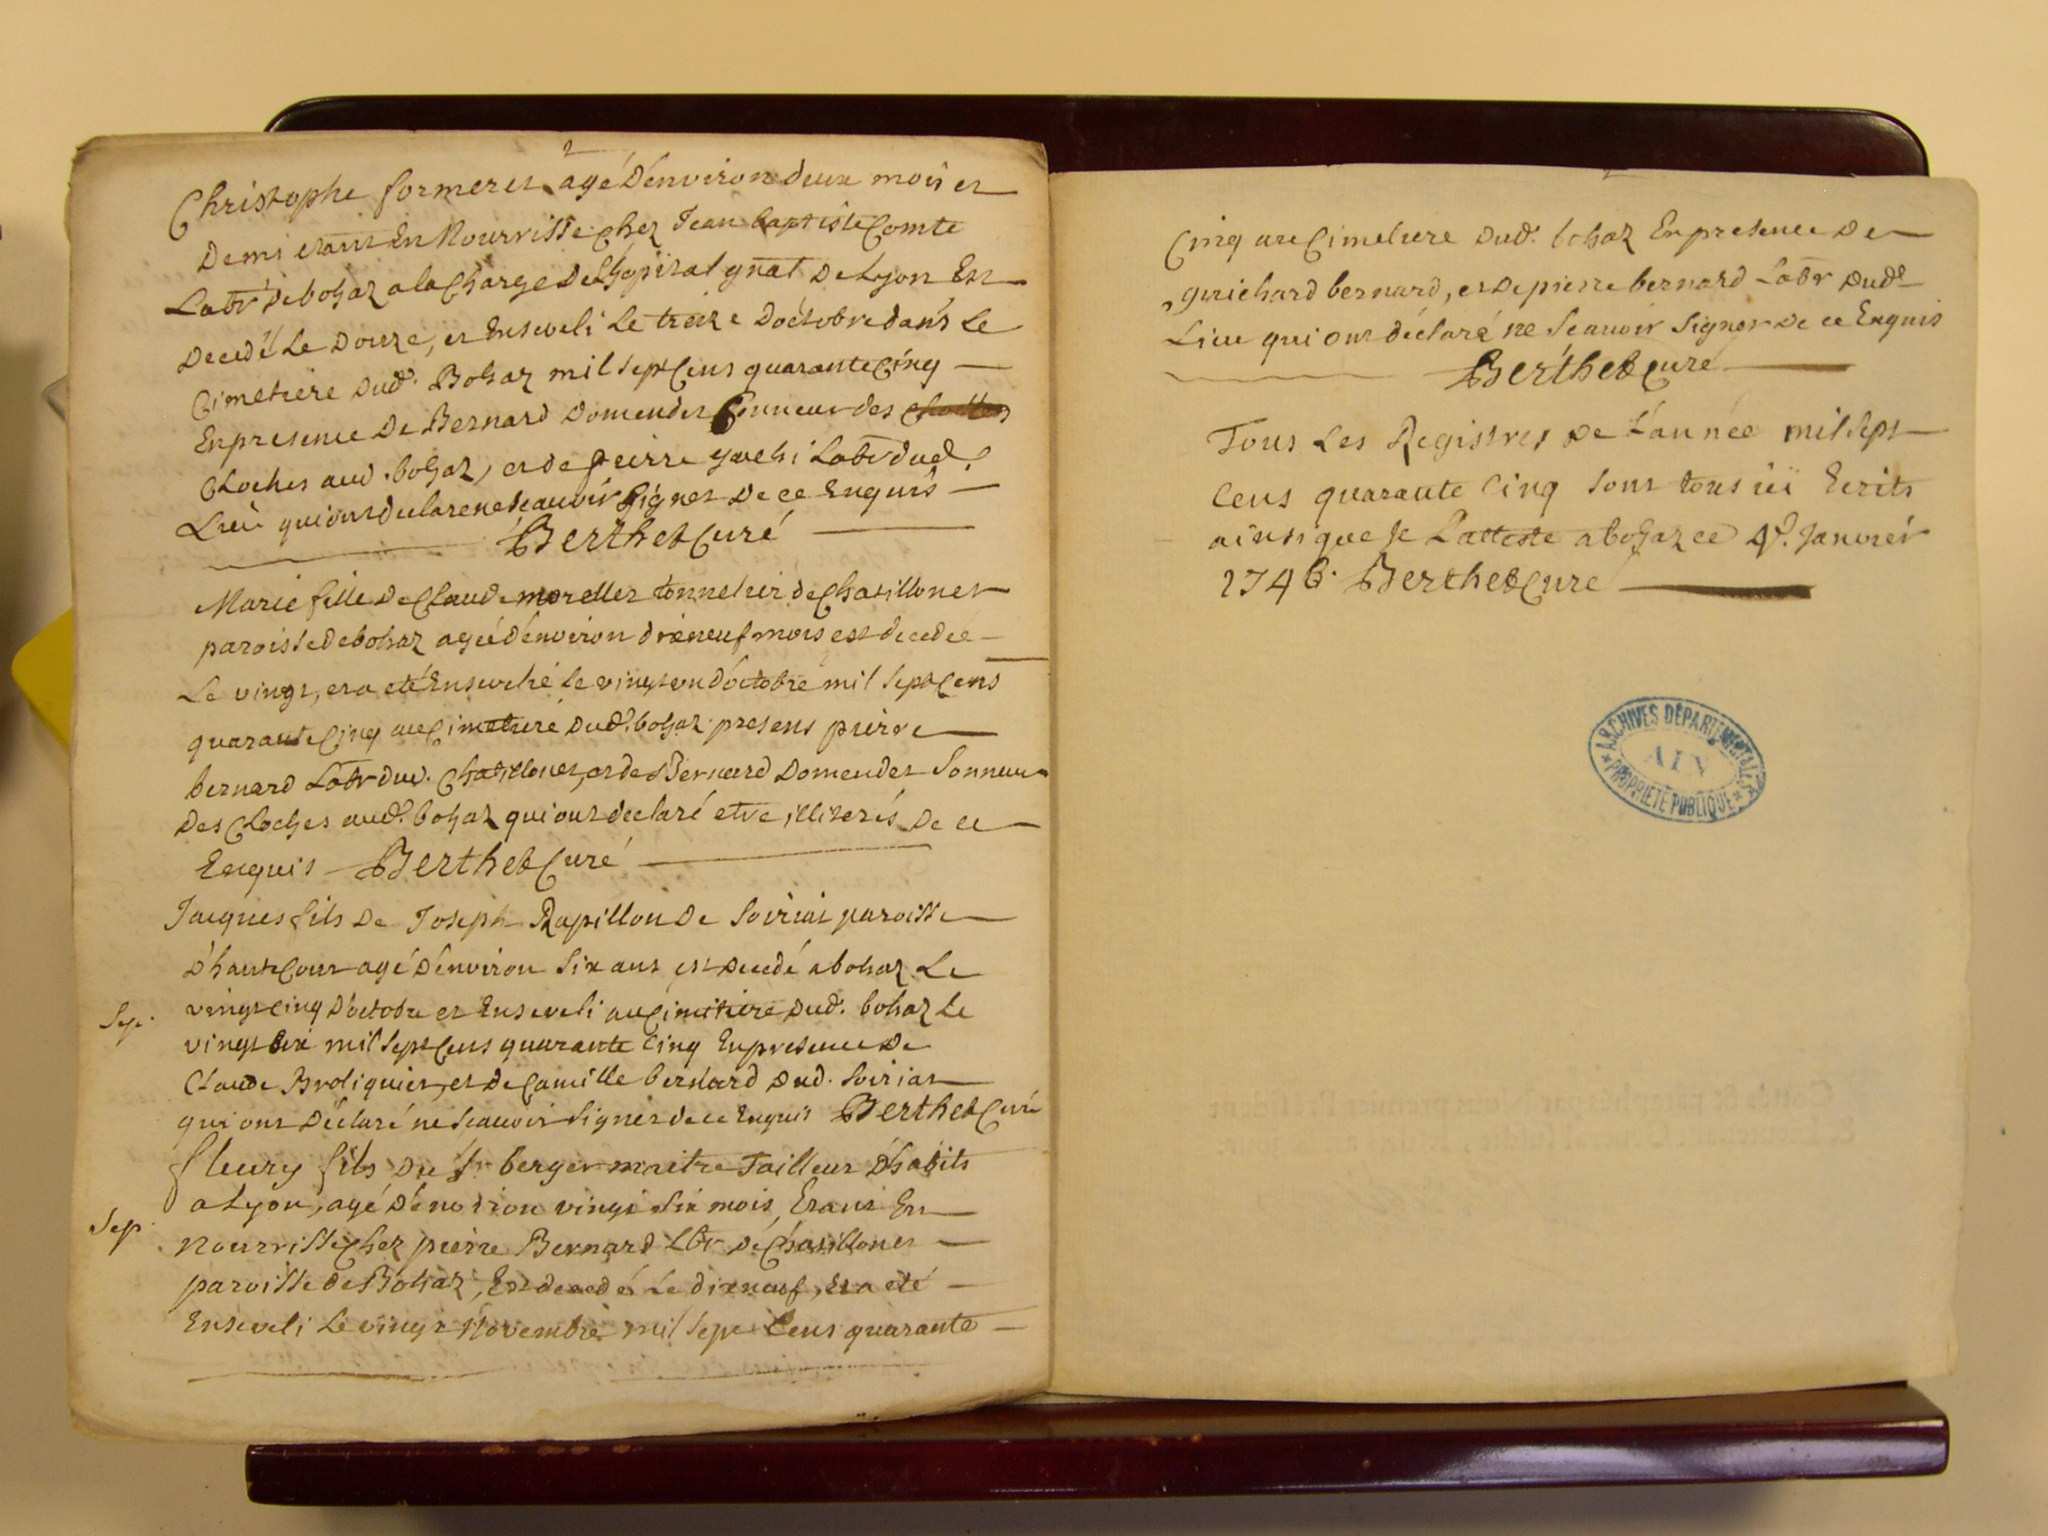 Christophe formeret agé d'environ deux mois et
demi etant En Nourrisse chez Jean baptiste Comte
Labr de bohaz a la Charge de L'hopital gnal de Lyon Est
decedé Le douze, et Enseveli Le treize d'octobre dans Le
Cimetiere dud. Bohaz mil sept Cens quarante Cinq
En presence de Bernard Domender Sonneur des
Cloches aud. bohaz, et de pierre Labr dud.
Lieu qui ont declare ne scauoir signer de ce Enquis
Berthet Curé
Marie fille de Claude morellet tonnelier de Chatillonet
paroisse de bohaz agée d'environ dixneuf mois est decedée
Le vingt, et a eté Ensevelie Le vingt un d'octobre mil sept Cens
quarante Cinq au Cimetiere dud. bohaz presens pierre
bernard Labr dud. Chatillonet, et de Bernard Domender Sonneur
des Cloches aud. bohaz qui ont declaré etre illiterés de ce
Enquis Berthet Curé
Jacques fils de Joseph Rapillon de Soiriat paroisse
d'hautecour agé d'environ six ans est decedé a bohaz Le
Sep.
vingt cinq d'octobre et Enseveli au Cimitiere dud. bohaz Le
vingt six mil sept Cens quarante Cinq En presence de
Claude Broliquier, et de Camille bernard dud. Soiriat
qui ont déclaré ne scauoir signer de ce Enquis Berthet Curé
fleury fils du Sr berger maitre Tailleur d'habits
a Lyon, agé d'environ vingt six mois, Etant En
Sep.
Nourrisse Chez pierre Bernard Lbr de Chatillonet
paroisse de Bohaz, Est decedé Le dixneuf, et a eté
Enseveli Le vingt Novembre mil sept Cens quarante
Cinq au Cimetiere dud. bohaz En presence de
guichard bernard, et de pierre bernard Labr dud.
Lieu qui ont déclaré ne scauoir signer de ce Enquis
Berthet Curé
Tous Les Registres de L'année mil sept
Cens quarante Cinq sont tous ici Ecrits
ainsi que je L'atteste a bohaz ce 4e. Janvier
1746. Berthet Curé
ARCHIVES DÉPARTEMENTALES
AIN
PROPRIÉTÉ PUBLIQUE